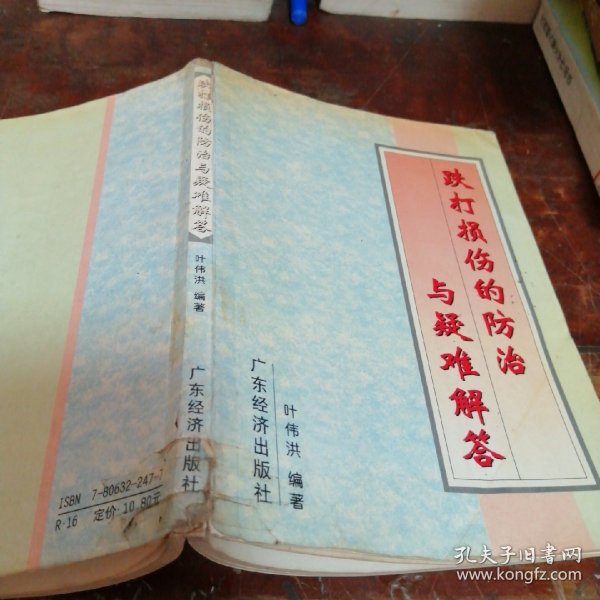 跌打损伤的防治
与疑难解答
叶伟洪 编著
广东经济出版社
跌打损伤的防治与疑难解答
叶伟洪 编著
广东经济出版社
ISBN 7-80632-247-7
R·16 定价:10.80元
孔夫子旧书网
www.kongfz.com